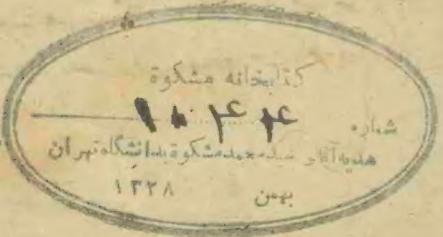 کتابخانه مشکوة
شماره ۱۰۴۴
هدیه آقای سید محمد مشکوة بدانشگاه تهران
بهمن ۱۳۲۸